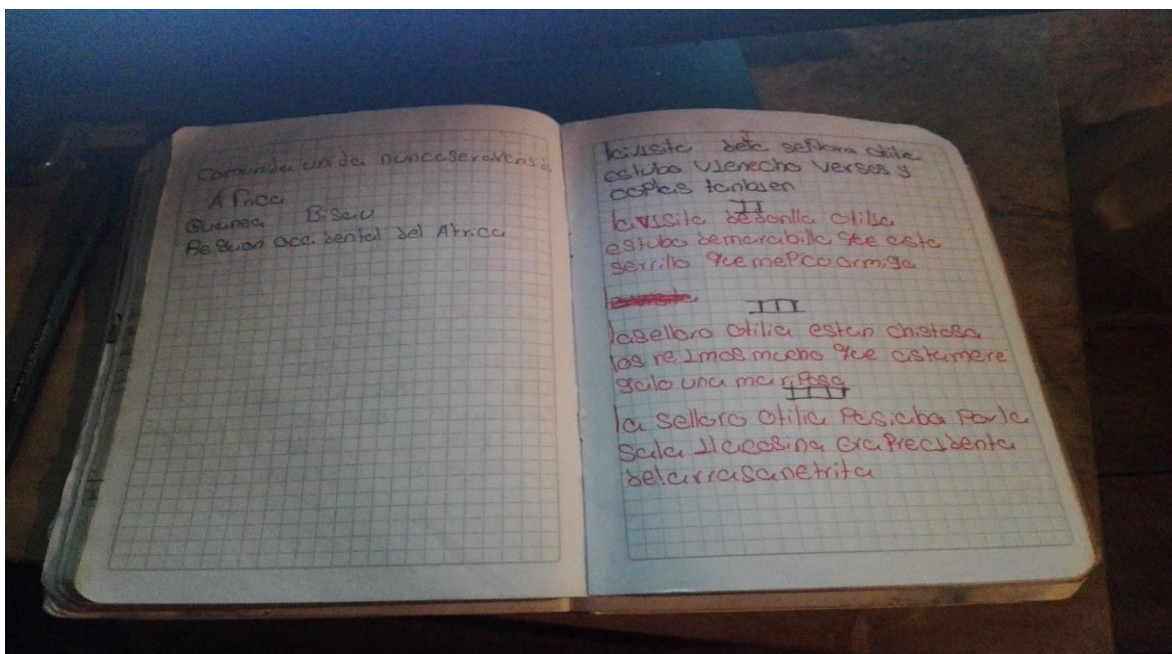 Comunida unida nuncaseravensida
Africa
Guinea Bisau
Reguon occidental del Africa
I
lavisita dela señora otilia
estubo vienecho versos y
coplas tanbien
II
la visita dedonlla otilia
estubo demarabilla que asta
serrillo que mepico ormiga
III
lasellora otilia estan chistosa
los reimos mucho que astamere
galo una mariposa
IIII
la sellora otilia Pasiaba Porla
Sala Ilacosina era Precidenta
delarrasanetrita